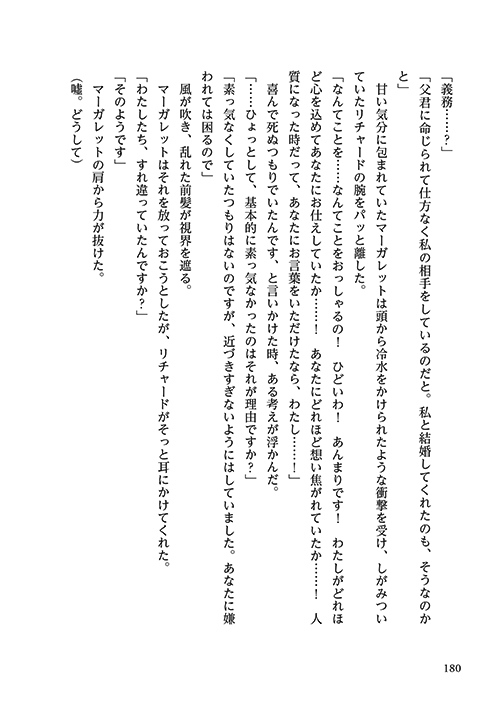 「義務……？」
「父君に命じられて仕方なく私の相手をしているのだと。私と結婚してくれたのも、そうなのか
と」
　甘い気分に包まれていたマーガレットは頭から冷水をかけられたような衝撃を受け、しがみつい
ていたリチャードの腕をパッと離した。
「なんてことを……なんてことをおっしゃるの！　ひどいわ！　あんまりです！　わたしがどれほ
ど心を込めてあなたにお仕えしていたか……！　あなたにどれほど想い焦がれていたか……！　人
質になった時だって、あなたにお言葉をいただけたなら、わたし……！」
　喜んで死ぬつもりでいたんです、と言いかけた時、ある考えが浮かんだ。
「……ひょっとして、基本的に素っ気なかったのはそれが理由ですか？」
「素っ気なくしていたつもりはないのですが、近づきすぎないようにはしていました。あなたに嫌
われては困るので」
　風が吹き、乱れた前髪が視界を遮る。
　マーガレットはそれを放っておこうとしたが、リチャードがそっと耳にかけてくれた。
「わたしたち、すれ違っていたんですか？」
「そのようです」
　マーガレットの肩から力が抜けた。
（嘘。どうして）
180